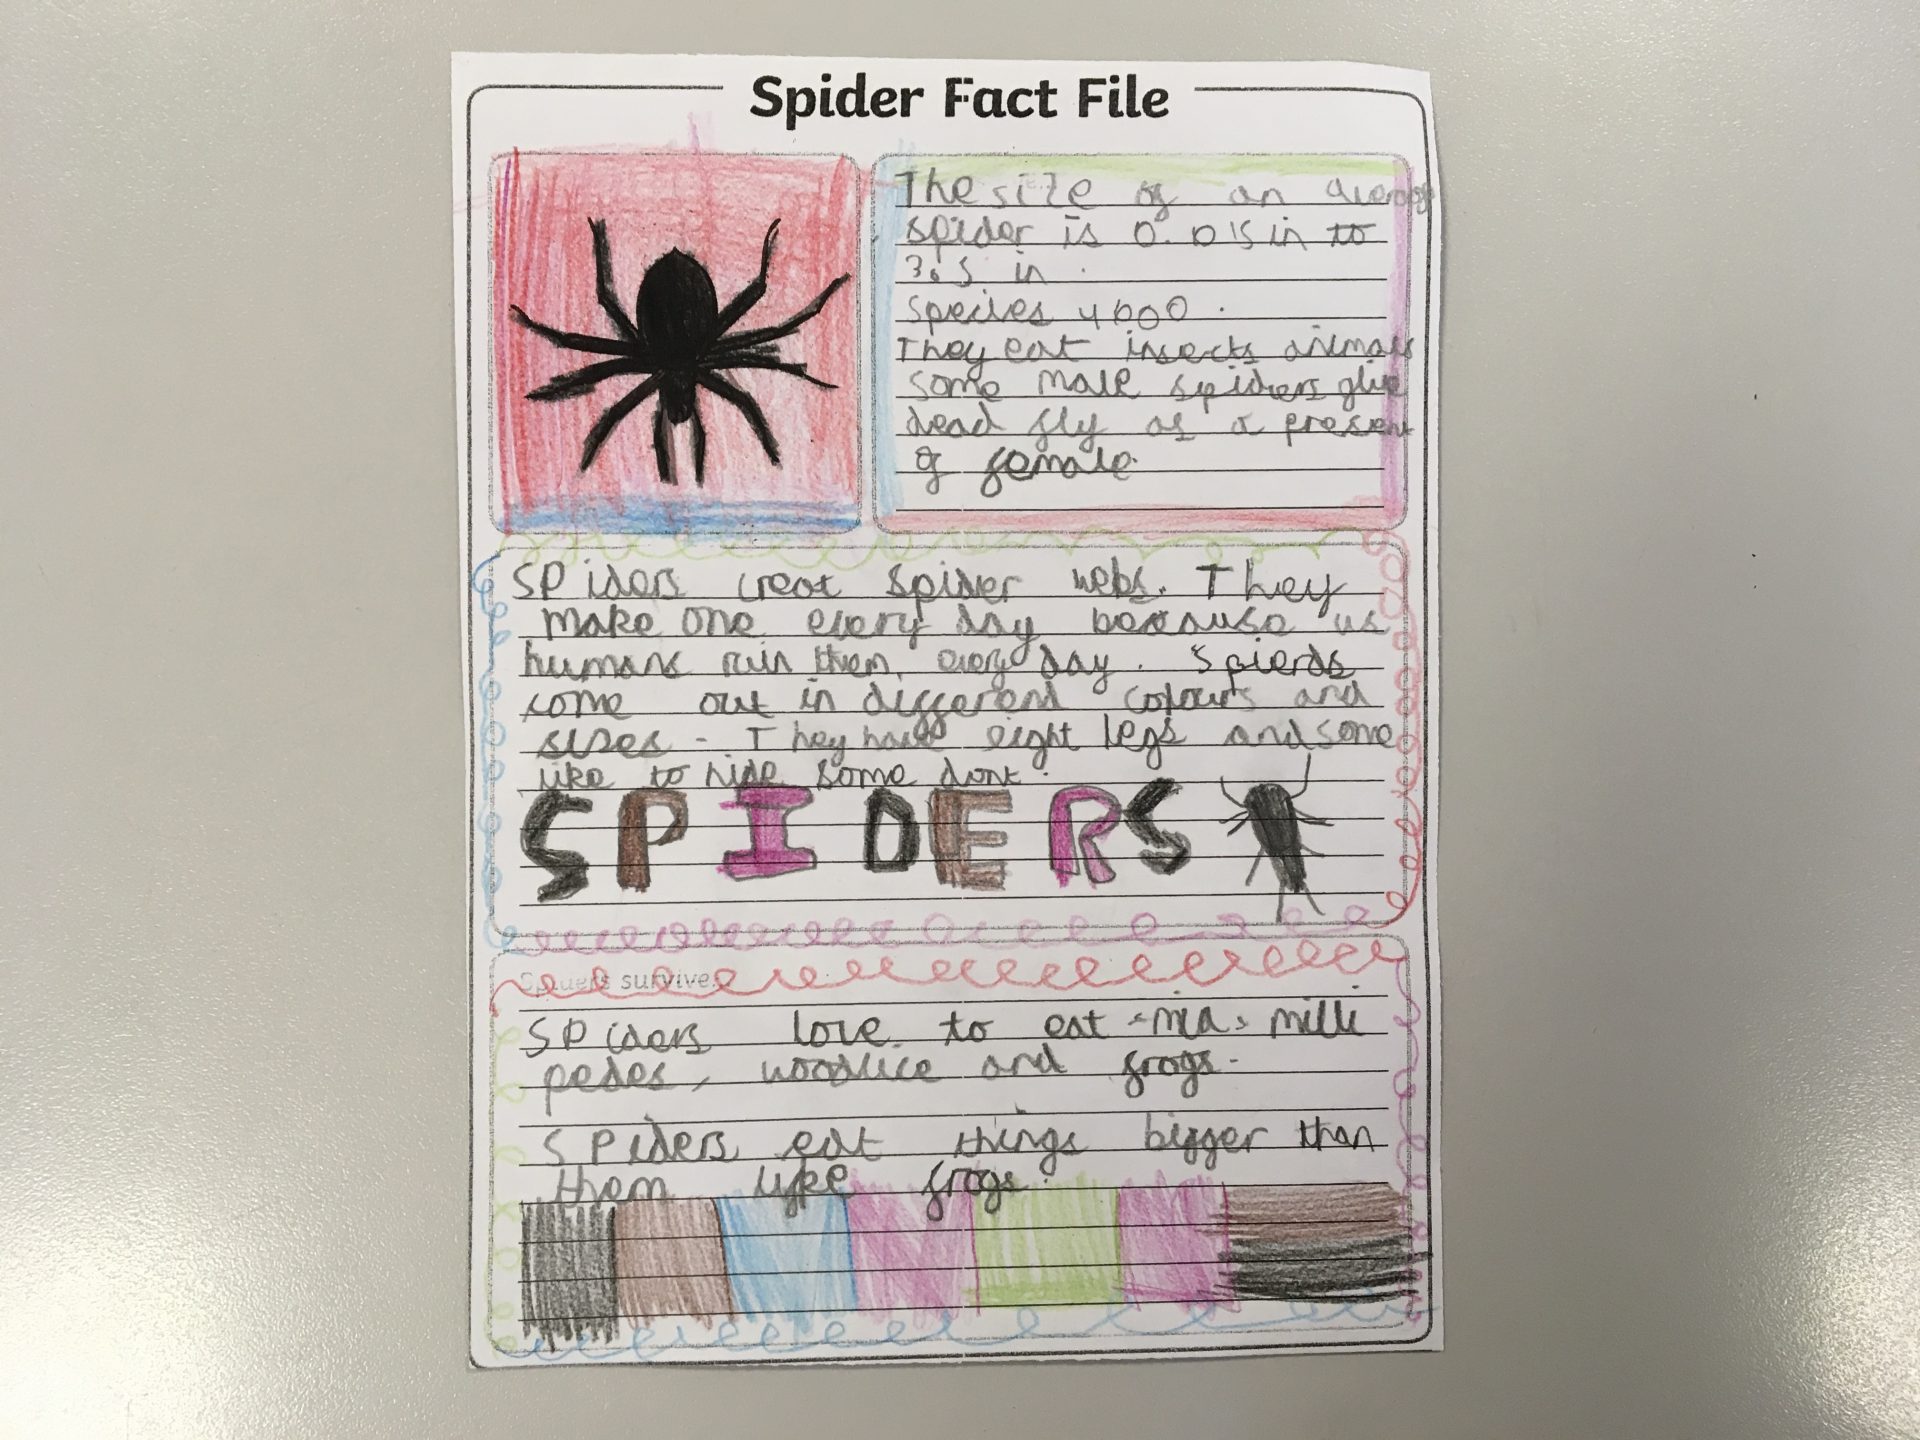 Spider Fact File
The size of an average
spider is 0.015 in to
3.5 in.
Species 4600.
They eat insects animals
some male spiders give
dead fly as a present
of female.
Spiders creat spider webs. They
make one every day because us
humans ruin them, every day. Spierds
come out in different colours and
sizes. They have eight legs and some
like to hide some dont.
SPIDERS
Spiders survive.
Spiders love to eat milli
pedes, woodlice and frogs.
Spiders eat things bigger than
them like frogs.